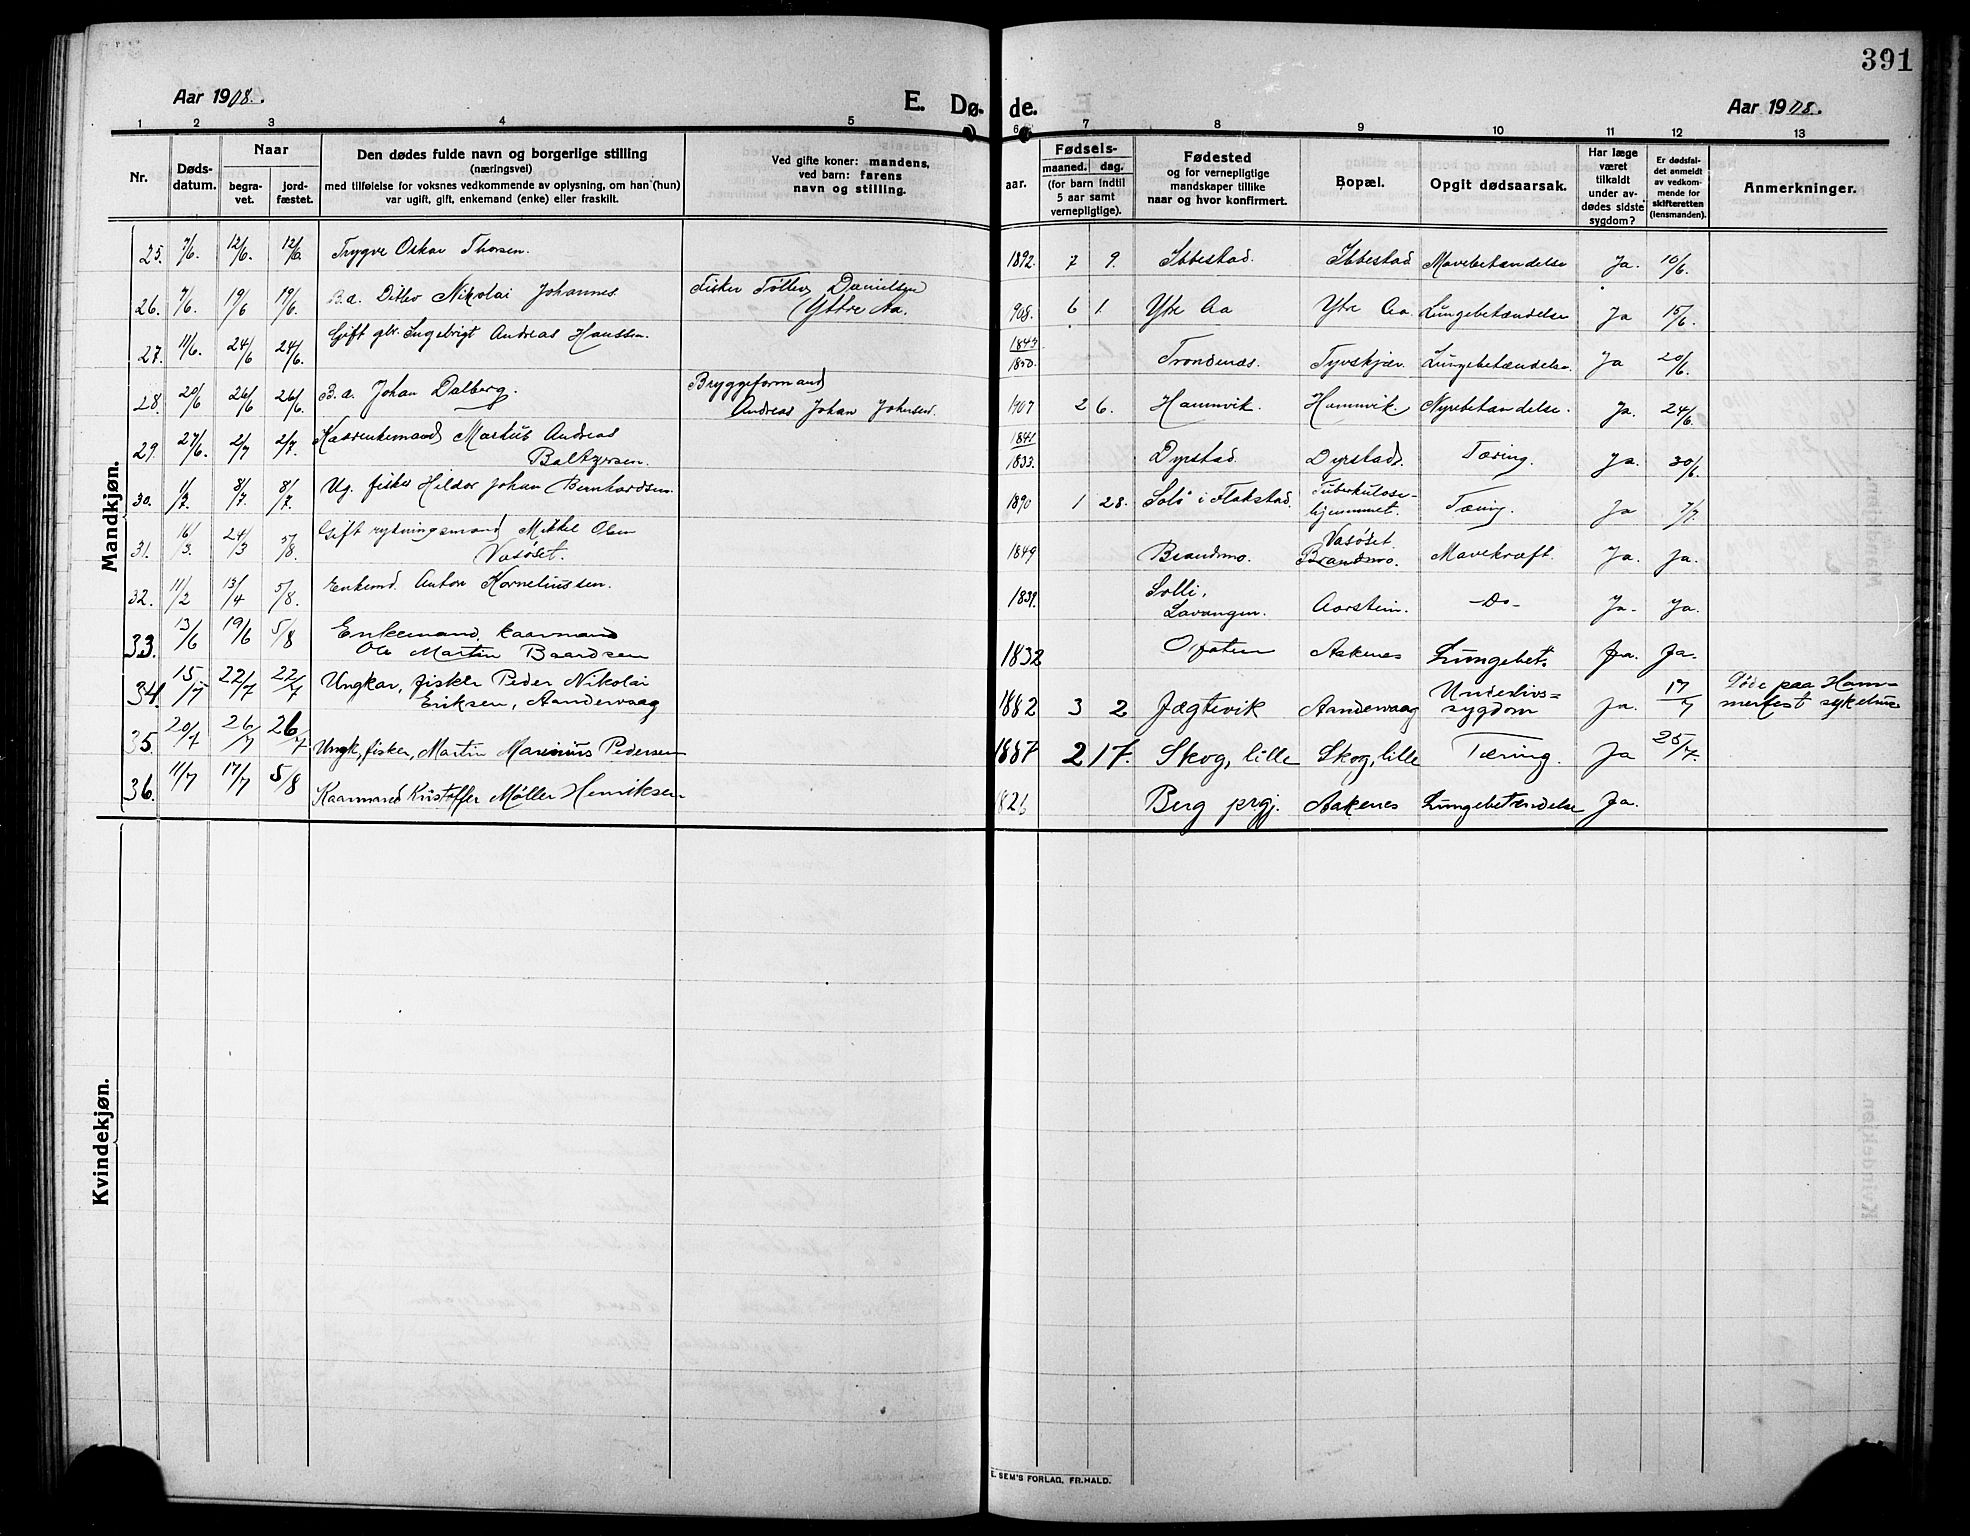 391
Aar 1908.
E. Dø- de.
Aar 1908.
1 2 3 4 5 6 7 8 9 10 11 12 13
Nr.
Døds-
datum.
Naar
begra-
vet.
jord-
fæstet.
Den dødes fulde navn og borgerlige stilling
(næringsvei)
med tilføielse for voksnes vedkommende av oplysning, om han (hun)
var ugift, gift, enkemand (enke) eller fraskilt.
Ved gifte koner: mandens,
ved barn: farens
navn og stilling.
aar.
Fødsels-
maaned. dag.
(for barn indtil
5 aar samt
vernepligtige).
Fødested
og for vernepligtige
mandskaper tillike
naar og hvor konfirmert.
Bopæl.
Opgit dødsaarsak.
Har læge
været
tilkaldt
under av-
dødes sidste
sygdom?
Er dødsfal-
det anmeldt
av vedkom-
mende for
skifteretten
(lensmanden).
Anmerkninger.
Mandkjøn.
25. 7/6. 12/6. 12/6. Trygve Oskar Thorsen. 1892. 7 9. Ibbestad. Ibbestad Mavebetændelse Ja. 10/6.
26. 7/6. 19/6 19/6. B.a. Ditlev Nikolai Johannes. Fisker Tollev Danielsen
Yttre Aa. 908. 6 1. Ytre Aa Ytre Aa. Lungebetændelse Ja 15/6.
27. 11/6. 24/6 24/6. Gift gbr. Ingebrigt Andreas Hanssen. 1843
1850. Trondenæs. Tyvskjær. Lungebetændelse. Ja 20/6.
28. 20/6 26/6 26/6. B.a. Johan Dalberg. Bryggeformand
Andreas Johan Johnsen. 1907 2 6. Hamnvik. Hamnvik. Nyrebetændelse. Ja. 24/6.
29. 27/6. 2/7 2/7. Kaarenkemand Martus Andreas
Baltzersen. 1841
1833. Dyrstad. Dyrstad. Tæring. Ja. 30/6
30. 1/7. 8/7 8/7. Ug. fisker Hildor Johan Bernhardsen. 1890 1 28. Solli i Flakstad. Tuberkulose-
hjemmet. Tæring. Ja 7/7.
31. 16/3. 24/3 5/8. Gift rydningsmand Mikkel Olsen
Vasöset. 1849 Brandmo. Vasöset
Brandmo. Mavekræft. Ja. Ja.
32. 11/2 13/4 5/8. Enkemd. Anton Kornelinssen. 1838. Solli,
Lavangen. Aarstein. -Do- Ja. Ja.
33. 13/6 19/6 5/8 Enkemand, kaarmand
Ole Martin Baardsen 1832 Ofoten Aakenes Lungebet. Ja. Ja.
34. 15/7 22/7 22/7 Ungkar, fisker Peder Nikolai
Eriksen, Aandervaag 1882 3 2 Jægtevik Aandervaag Underlivs=
sygdom Ja. 17/7 Døde paa Ham-
merfest sykehus
35. 20/7 26/7 26/7 Ungk, fisker, Martin Marenius Pedersen 1887 2 17. Skog, lille Skog, lille Tæring. Ja 25/7.
36. 11/7 17/7 5/8 Kaarmand Kristoffer Møller Henriksen 1826 Berg prgj. Aakenes Lungebetændelse Ja.
Kvindekjøn.
E. SEM'S FORLAG, FR.HALD.